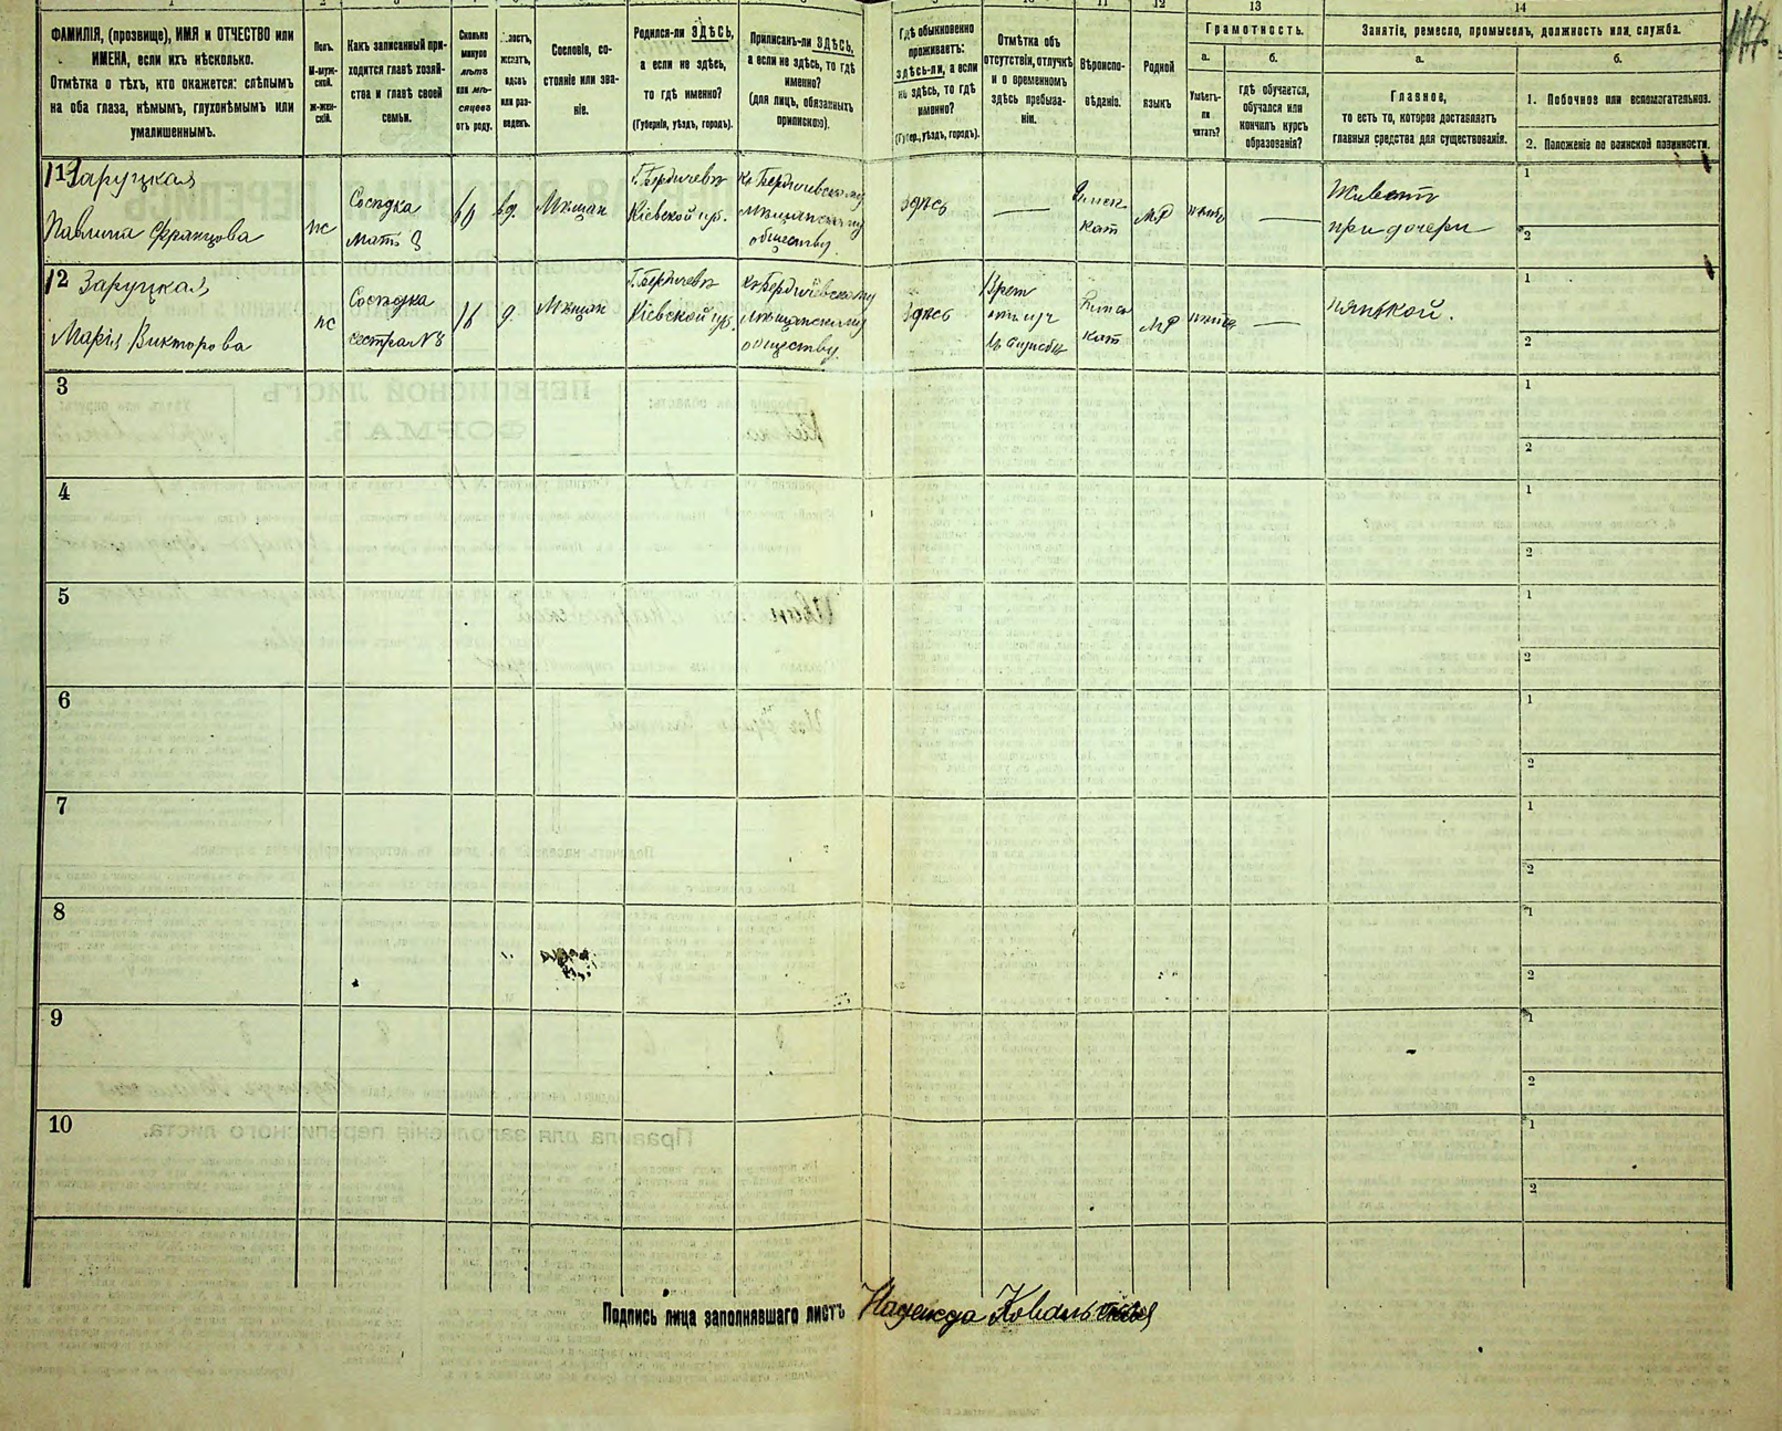 13
14
ФАМИЛІЯ, (прозвище), ИМЯ и ОТЧЕСТВО или
ИМЕНА, если ихъ нѣсколько.
Отмѣтка о тѣхъ, кто окажется: слѣпымъ
на оба глаза, нѣмымъ, глухонѣмымъ или
умалишеннымъ.
Полъ.
М-муж-
ской.
ж-жен-
скій.
Какъ записанный при-
ходится главѣ хозяй-
ства и главѣ своей
семьи.
Сколько
минуло
лѣтъ
или мѣ-
сяцевъ
отъ роду.
женатъ,
вдовъ
или раз-
веденъ.
Сословіе, со-
стояніе или зва-
ніе.
Родился-ли ЗДѢСЬ,
а если не здѣсь,
то гдѣ именно?
(Губернія, уѣздъ, городъ).
Приписанъ-ли ЗДѢСЬ,
а если не здѣсь, то гдѣ
именно?
(для лицъ, обязанныхъ
припискою).
Гдѣ обыкновенно
проживаетъ:
здѣсь-ли, а если
не здѣсь, то гдѣ
именно?
(Губер., уѣздъ, городъ).
Отмѣтка объ
отсутствіи, отлучкѣ
и о временномъ
здѣсь пребыва-
ніи.
Вѣроиспо-
вѣданіе.
Родной
языкъ
Грамотность.
а.
Умѣетъ-
ли
читать?
б.
гдѣ обучается,
обучался или
кончилъ курсъ
образованія?
Занятіе, ремесло, промыселъ, должность или служба.
а.
Главное,
то есть то, которое доставляетъ
главныя средства для существованія.
б.
1. Побочное или вспомогательное.
2. Положеніе по воинской повинности.
11 Заруцкая
Павлина Францова
ж
Сосѣдка
мать 8
69
вд.
Мѣщан
Г. Бердичевъ
Кіевской губ.
Къ Бердичевскому
мѣщанскому
обществу
Здѣсь
—
Римск.
кат
нѣтъ
—
Живетъ
при дочери
1
2
12 Заруцкая
Марія Викторова
ж
Сосѣдка
сестра №8
16
д.
Мѣщан
Г. Бердичевъ
Кіевской губ.
Къ Бердичевскому
мѣщанскому
обществу.
Здѣсь
Врем
отлуч
кат
нѣтъ
—
нянькой.
1
2
3
1
2
4
1
2
5
1
2
6
1
2
7
1
2
8
1
2
9
1
2
10
1
2
Подпись лица заполнявшаго листъ Надежда Ковальская